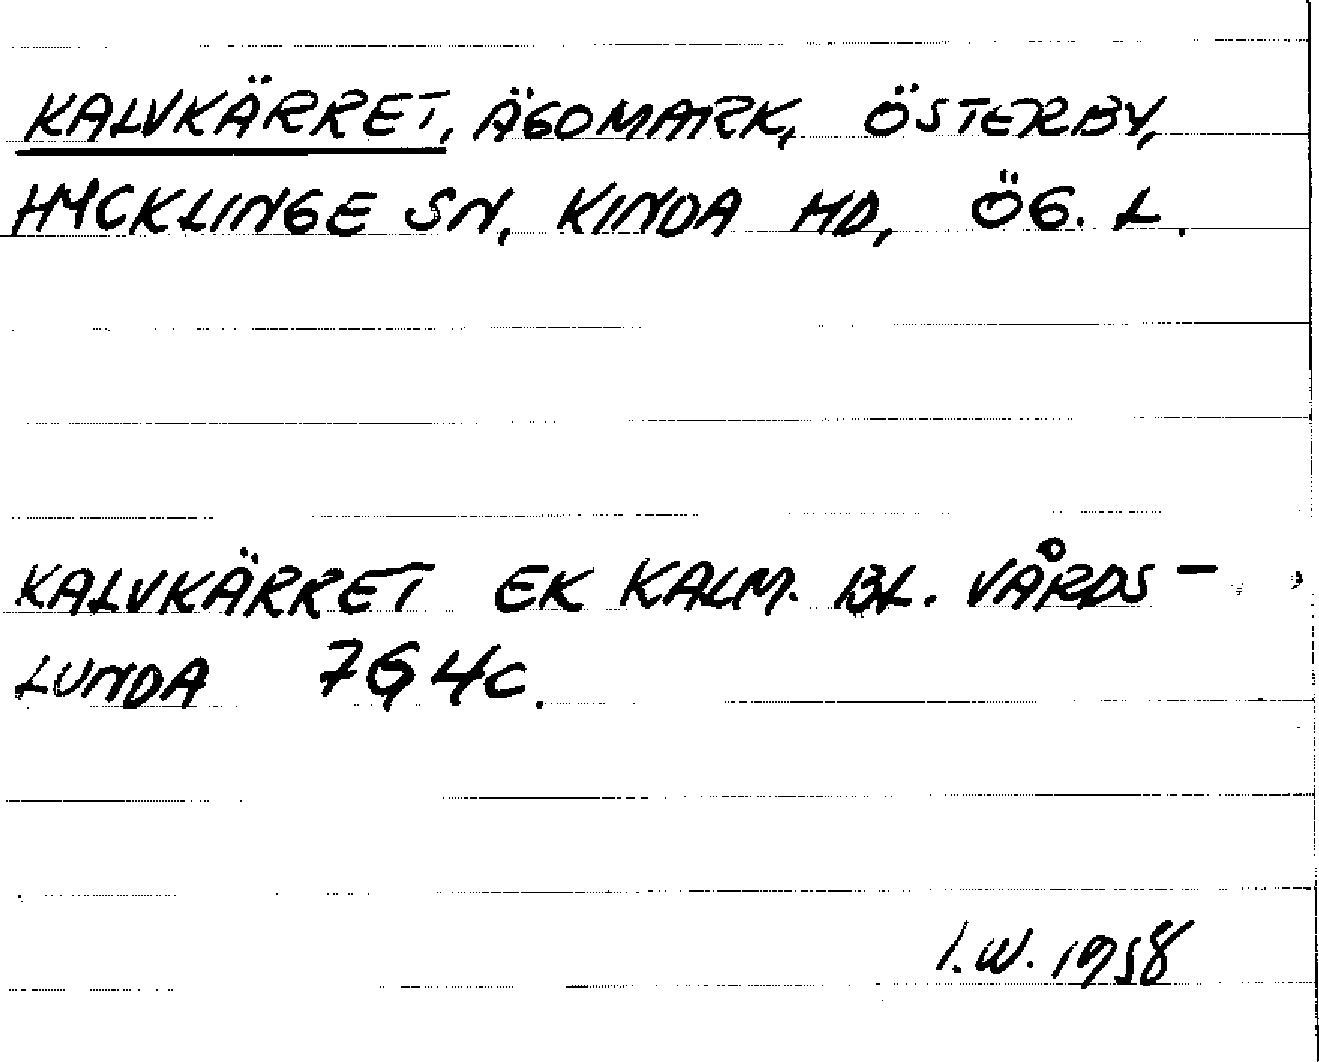 KALVKÄRRET, ÄGOMARK, ÖSTERBY,
HYCKLINGE SN, KINDA HD, ÖG. L.
KALVKÄRRET EK KALM. BL. VÅRDS-
LUNDA 7G4c.
I.W. 1958